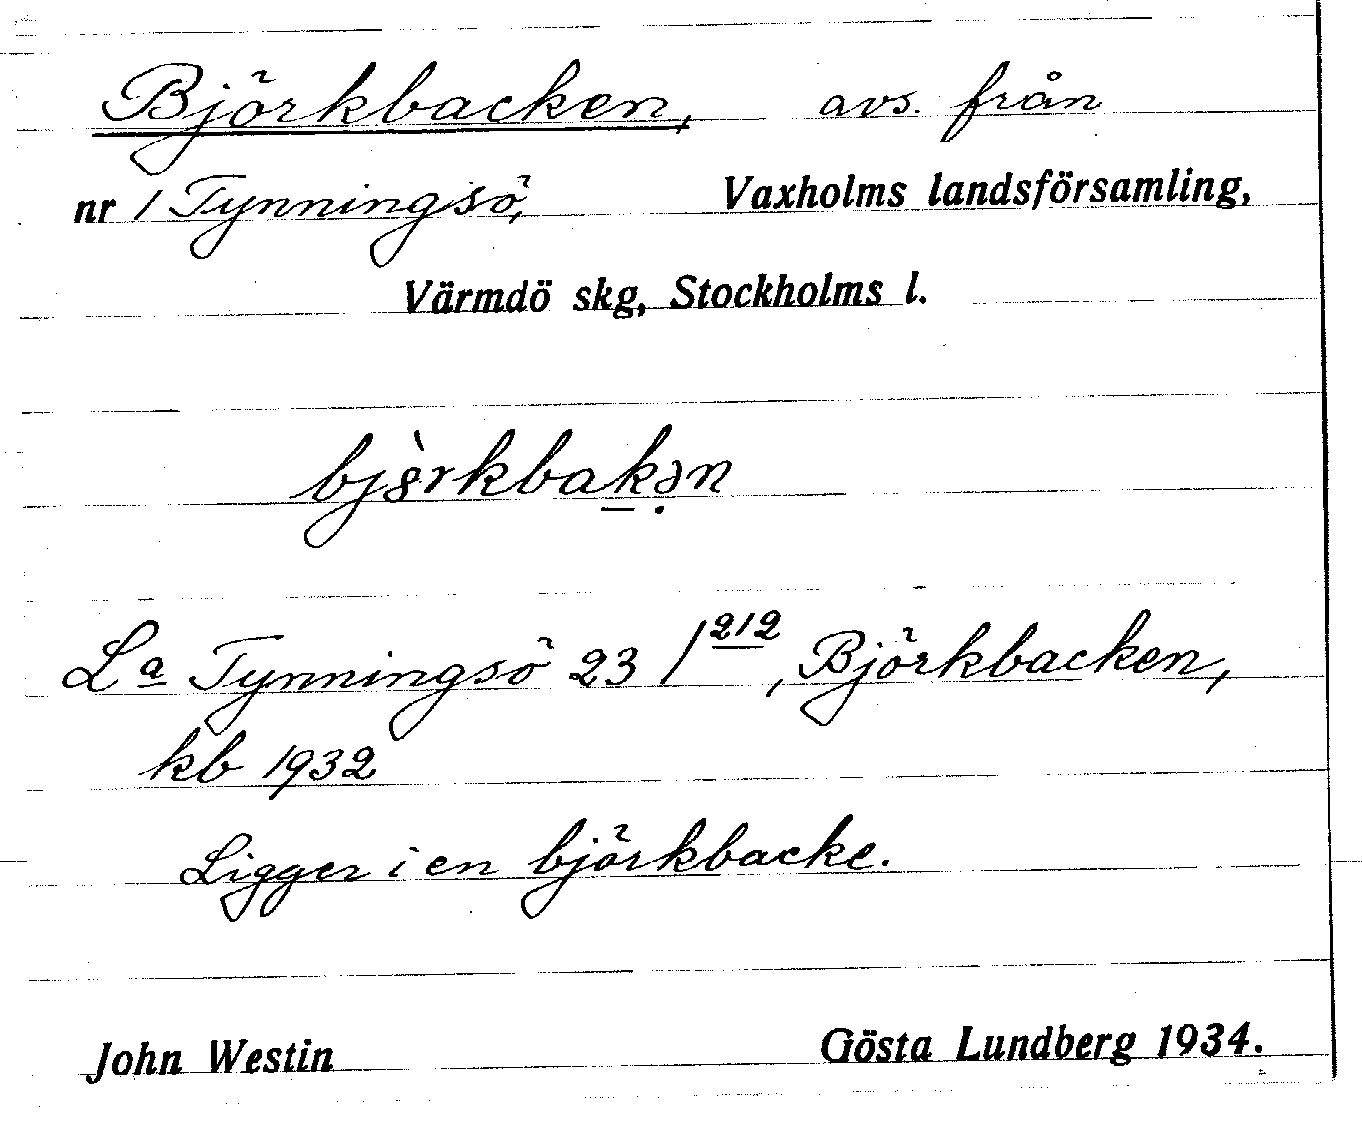 Björkbacken, avs. från
nr 1 Tynningsö, Vaxholms landsförsamling,
Värmdö skg, Stockholms l.
bjö̀rkbakə̣n
La Tynningsö 23/212, Björkbacken,
kb 1932
Ligger i en björkbacke.
John Westin Gösta Lundberg 1934.